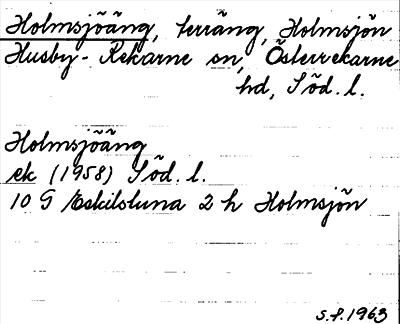 Holmsjöäng, terräng, Holmsjön
Husby-Rekarne sn, Österrekarne
hd, Söd. l.
Holmsjöäng
ek (1958) Söd. l.
10 G Eskilstuna 2 h Holmsjön
s.f. 1963